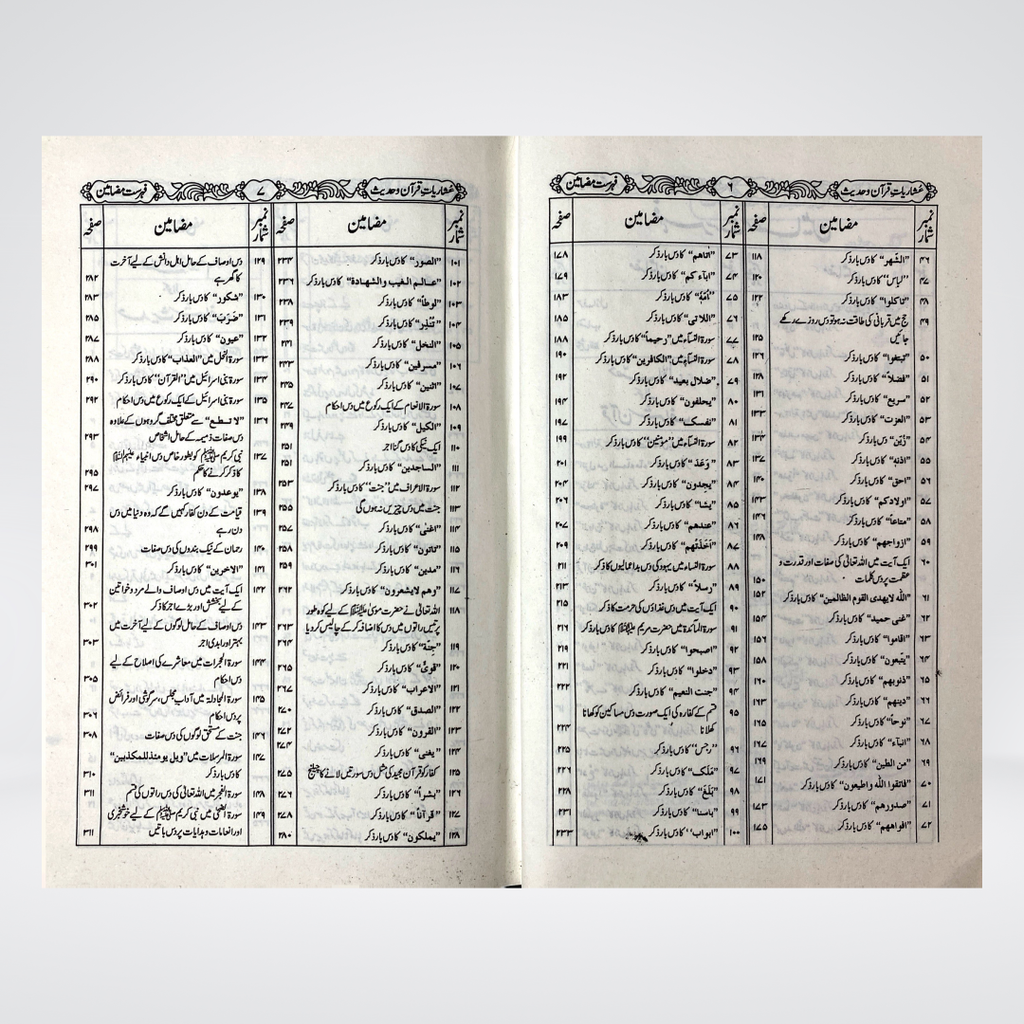 عشاریاتِ قرآن و حدیث ۶ فہرست مضامین
نمبر شمار مضامین صفحہ نمبر شمار مضامین صفحہ
۴۶ "الشهر" کا دس بار ذکر ۱۱۸
۴۷ "لباس" کا دس بار ذکر ۱۲۰
۴۸ "تاكلوا" کا دس بار ذکر ۱۲۲
۴۹ حج میں قربانی کی طاقت نہ ہو تو دس روزے رکھے
جائیں ۱۲۵
۵۰ "تبتغوا" کا دس بار ذکر ۱۲۶
۵۱ "فضلاً" کا دس بار ذکر ۱۲۸
۵۲ "سريع" کا دس بار ذکر ۱۳۱
۵۳ "العزت" کا دس بار ذکر ۱۳۳
۵۴ "زُيّن" کا دس بار ذکر ۱۳۴
۵۵ "اذنهٖ" کا دس بار ذکر ۱۳۷
۵۶ "احق" کا دس بار ذکر ۱۴۰
۵۷ "اولادكم" کا دس بار ذکر ۱۴۳
۵۸ "متاعاً" کا دس بار ذکر ۱۴۶
۵۹ "ازواجهم" کا دس بار ذکر ۱۴۸
۶۰ ایک آیت میں اللہ تعالیٰ کی صفات اور قدرت و
عظمت پر دس کلمات ۱۵۰
۶۱ "الله لايهدى القوم الظالمين" کا دس بار ذکر ۱۵۲
۶۲ "غنى حميد" کا دس بار ذکر ۱۵۴
۶۳ "اقاموا" کا دس بار ذکر ۱۵۶
۶۴ "يتبعون" کا دس بار ذکر ۱۵۸
۶۵ "ذنوبهم" کا دس بار ذکر ۱۶۰
۶۶ "دينهم" کا دس بار ذکر ۱۶۳
۶۷ "نوحاً" کا دس بار ذکر ۱۶۵
۶۸ "انبآء" کا دس بار ذکر ۱۶۷
۶۹ "من الطين" کا دس بار ذکر ۱۶۹
۷۰ "فاتقوا الله واطيعون" کا دس بار ذکر ۱۷۱
۷۱ "صدورهم" کا دس بار ذکر ۱۷۳
۷۲ "افواههم" کا دس بار ذکر ۱۷۵
۷۳ "اتاهم" کا دس بار ذکر ۱۷۸
۷۴ "ابآءكم" کا دس بار ذکر ۱۷۹
۷۵ کا دس بار ذکر ۱۸۳
۷۶ "اللاتى" کا دس بار ذکر ۱۸۵
۷۷ سورۃ النساء میں "رحيماً" کا دس بار ذکر ۱۸۸
۷۸ سورۃ النساء میں "الكافرين" کا دس بار ذکر ۱۹۰
۷۹ "ضلال بعيد" کا دس بار ذکر ۱۹۲
۸۰ "يحلفون" کا دس بار ذکر ۱۹۴
۸۱ "نفسك" کا دس بار ذکر ۱۹۷
۸۲ سورۃ النساء میں "مؤمنين" کا دس بار ذکر ۱۹۹
۸۳ "وَعَدَ" کا دس بار ذکر ۲۰۱
۸۴ "يجدون" کا دس بار ذکر ۲۰۴
۸۵ "يشا" کا دس بار ذکر ۲۰۶
۸۶ "عندهم" کا دس بار ذکر ۲۰۷
۸۷ "اَخَذَتْهم" کا دس بار ذکر ۲۰۹
۸۸ سورۃ النساء میں یہود کی دس بداعمالیوں کا ذکر ۲۱۱
۸۹ "رسلاً" کا دس بار ذکر ۲۱۳
۹۰ ایک آیت میں دس غذاؤں کی حرمت کا ذکر ۲۱۵
۹۱ سورۃ المائدۃ میں حضرت مریم علیہا السلام کا دس بار ذکر ۲۱۶
۹۲ "اصبحوا" کا دس بار ذکر ۲۱۹
۹۳ "دخلوا" کا دس بار ذکر ۲۲۱
۹۴ "جنت النعيم" کا دس بار ذکر ۲۲۲
۹۵ قسم کے کفارہ کی ایک صورت دس مساکین کو کھانا
کھلانا ۲۲۴
۹۶ "رجس" کا دس بار ذکر ۲۲۵
۹۷ "مَلَك" کا دس بار ذکر ۲۲۶
۹۸ "بَلَغَ" کا دس بار ذکر ۲۲۸
۹۹ "باسنا" کا دس بار ذکر ۲۳۱
۱۰۰ "ابواب" کا دس بار ذکر ۲۳۳
عشاریاتِ قرآن و حدیث ۷ فہرست مضامین
نمبر شمار مضامین صفحہ نمبر شمار مضامین صفحہ
۱۰۱ "الصور" کا دس بار ذکر ۲۳۴
۱۰۲ "عالم الغيب والشهادة" کا دس بار ذکر ۲۳۶
۱۰۳ "لوطاً" کا دس بار ذکر ۲۳۸
۱۰۴ کا دس بار ذکر ۲۳۹
۱۰۵ "النخل" کا دس بار ذکر ۲۴۱
۱۰۶ "مسرفين" کا دس بار ذکر ۲۴۳
۱۰۷ "اثنين" کا دس بار ذکر ۲۴۵
۱۰۸ سورۃ الانعام کے ایک رکوع میں دس احکام ۲۴۷
۱۰۹ "الكيل" کا دس بار ذکر ۲۴۹
۱۱۰ ایک نیکی کا دس گنا اجر ۲۵۱
۱۱۱ "الساجدين" کا دس بار ذکر ۲۵۱
۱۱۲ سورۃ الاعراف میں "جنت" کا دس بار ذکر ۲۵۳
۱۱۳ جنت میں دس چیزیں نہ ہوں گی ۲۵۵
۱۱۴ "اغنى" کا دس بار ذکر ۲۵۷
۱۱۵ "تاتون" کا دس بار ذکر ۲۵۸
۱۱۶ "مدين" کا دس بار ذکر ۲۵۹
۱۱۷ "وهم لايشعرون" کا دس بار ذکر ۲۶۲
۱۱۸ اللہ تعالیٰ نے حضرت موسیٰ علیہ السلام کے لیے کوہ طور
پر تیس راتوں میں دس کا اضافہ کر کے چالیس کر دیا ۲۶۳
۱۱۹ "جِنّة" کا دس بار ذکر ۲۶۴
۱۲۰ "قوىٌّ" کا دس بار ذکر ۲۶۵
۱۲۱ "الاعراب" کا دس بار ذکر ۲۶۷
۱۲۲ "الصدق" کا دس بار ذکر ۲۷۰
۱۲۳ "القرون" کا دس بار ذکر ۲۷۲
۱۲۴ "يغنى" کا دس بار ذکر ۲۷۴
۱۲۵ کفار کو قرآن مجید کی مثل دس سورتیں لانے کا چیلنج ۲۷۵
۱۲۶ "بشراً" کا دس بار ذکر ۲۷۶
۱۲۷ "قرآناً" کا دس بار ذکر ۲۷۸
۱۲۸ "يملكون" کا دس بار ذکر ۲۸۰
۱۲۹ دس اوصاف کے حامل اہل دانش کے لیے آخرت
کا گھر ہے ۲۸۲
۱۳۰ "شكور" کا دس بار ذکر ۲۸۳
۱۳۱ "ضَرَبَ" کا دس بار ذکر ۲۸۵
۱۳۲ "عيون" کا دس بار ذکر ۲۸۷
۱۳۳ سورۃ النحل میں "العذاب" کا دس بار ذکر ۲۸۸
۱۳۴ سورۃ بنی اسرائیل میں "القرآن" کا دس بار ذکر ۲۹۰
۱۳۵ سورۃ بنی اسرائیل کے ایک رکوع میں دس احکام ۲۹۲
۱۳۶ "لا تطع" سے متعلق مختلف گروہوں کے علاوہ
دس صفات ذمیمہ کے حامل اشخاص ۲۹۳
۱۳۷ نبی کریم ﷺ کو بطور خاص دس انبیاء علیہم السلام
کا ذکر کرنے کا حکم ۲۹۵
۱۳۸ "يوعدون" کا دس بار ذکر ۲۹۷
۱۳۹ قیامت کے دن کفار کہیں گے کہ وہ دنیا میں دس
دن رہے ۲۹۸
۱۴۰ رحمان کے نیک بندوں کی دس صفات ۲۹۹
۱۴۱ "الاخرين" کا دس بار ذکر ۳۰۱
۱۴۲ ایک آیت میں دس اوصاف والے مرد و خواتین
کے لیے بخشش اور بڑے اجر کا ذکر ۳۰۲
۱۴۳ دس اوصاف کے حامل لوگوں کے لیے آخرت میں
بہتر اور ابدی اجر ۳۰۳
۱۴۴ سورۃ الحجرات میں معاشرے کی اصلاح کے لیے
دس احکام ۳۰۵
۱۴۵ سورۃ المجادلہ میں آداب مجلس، سرگوشی اور فرائض
پر دس احکام ۳۰۶
۱۴۶ جنت کے مستحق لوگوں کی دس صفات ۳۰۸
۱۴۷ سورۃ المرسلات میں "ويل يومئذ للمكذبين"
کا دس بار ذکر ۳۱۰
۱۴۸ سورۃ الفجر میں اللہ تعالیٰ کی دس راتوں کی قسم ۳۱۱
۱۴۹ سورۃ الضحیٰ میں نبی کریم ﷺ کے لیے خوشخبری
اور انعامات و ہدایات پر دس باتیں ۳۱۱